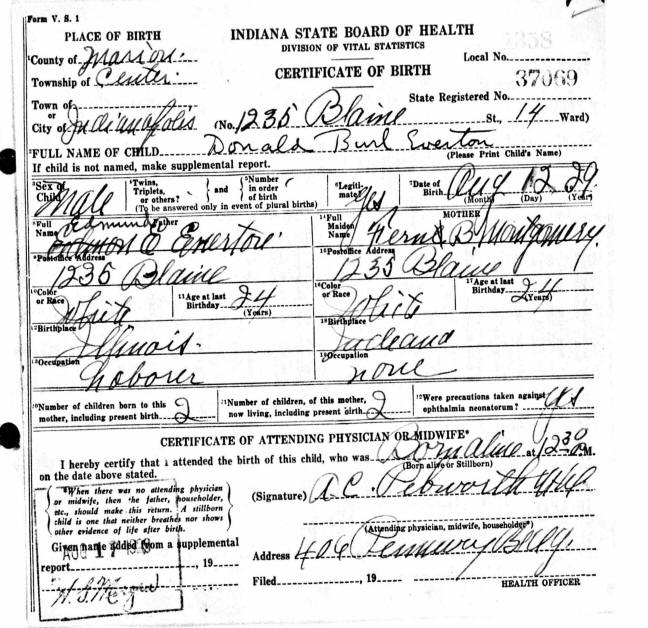 Form V. S. 1
PLACE OF BIRTH
INDIANA STATE BOARD OF HEALTH
DIVISION OF VITAL STATISTICS
CERTIFICATE OF BIRTH
Local No.
37069
State Registered No.
County of Marion
Township of Center
Town of
or
City of Indianapolis (No. 1235 Blaine St., 14 Ward)
FULL NAME OF CHILD Donald Burl Everton
(Please Print Child's Name)
If child is not named, make supplemental report.
Sex of Child Male
Twins, Triplets, or others? and Number in order of birth
(To be answered only in event of plural births)
Legitimate? Yes
Date of Birth Aug 12 29
(Month) (Day) (Year)
Full Name Father
Edmund E Everton
Postoffice Address
1235 Blaine
Color or Race White
Age at last Birthday 24 (Years)
Birthplace
Illinois
Occupation
Laborer
MOTHER
Full Maiden Name Fern B Montgomery
Postoffice Address
1235 Blaine
Color or Race White
Age at last Birthday 24 (Years)
Birthplace
Indiana
Occupation
none
Number of children born to this mother, including present birth 2
Number of children, of this mother, now living, including present birth 2
Were precautions taken against ophthalmia neonatorum? Yes
CERTIFICATE OF ATTENDING PHYSICIAN OR MIDWIFE*
I hereby certify that I attended the birth of this child, who was Born alive at 12 30 M.
(Born alive or Stillborn)
on the date above stated.
*When there was no attending physician
or midwife, then the father, householder,
etc., should make this return. A stillborn
child is one that neither breathes nor shows
other evidence of life after birth.
(Signature) A. C. Pebworth
(Attending physician, midwife, householder*)
Given name added from a supplemental
report , 19
AUG 17
Address 406
Filed , 19
HEALTH OFFICER